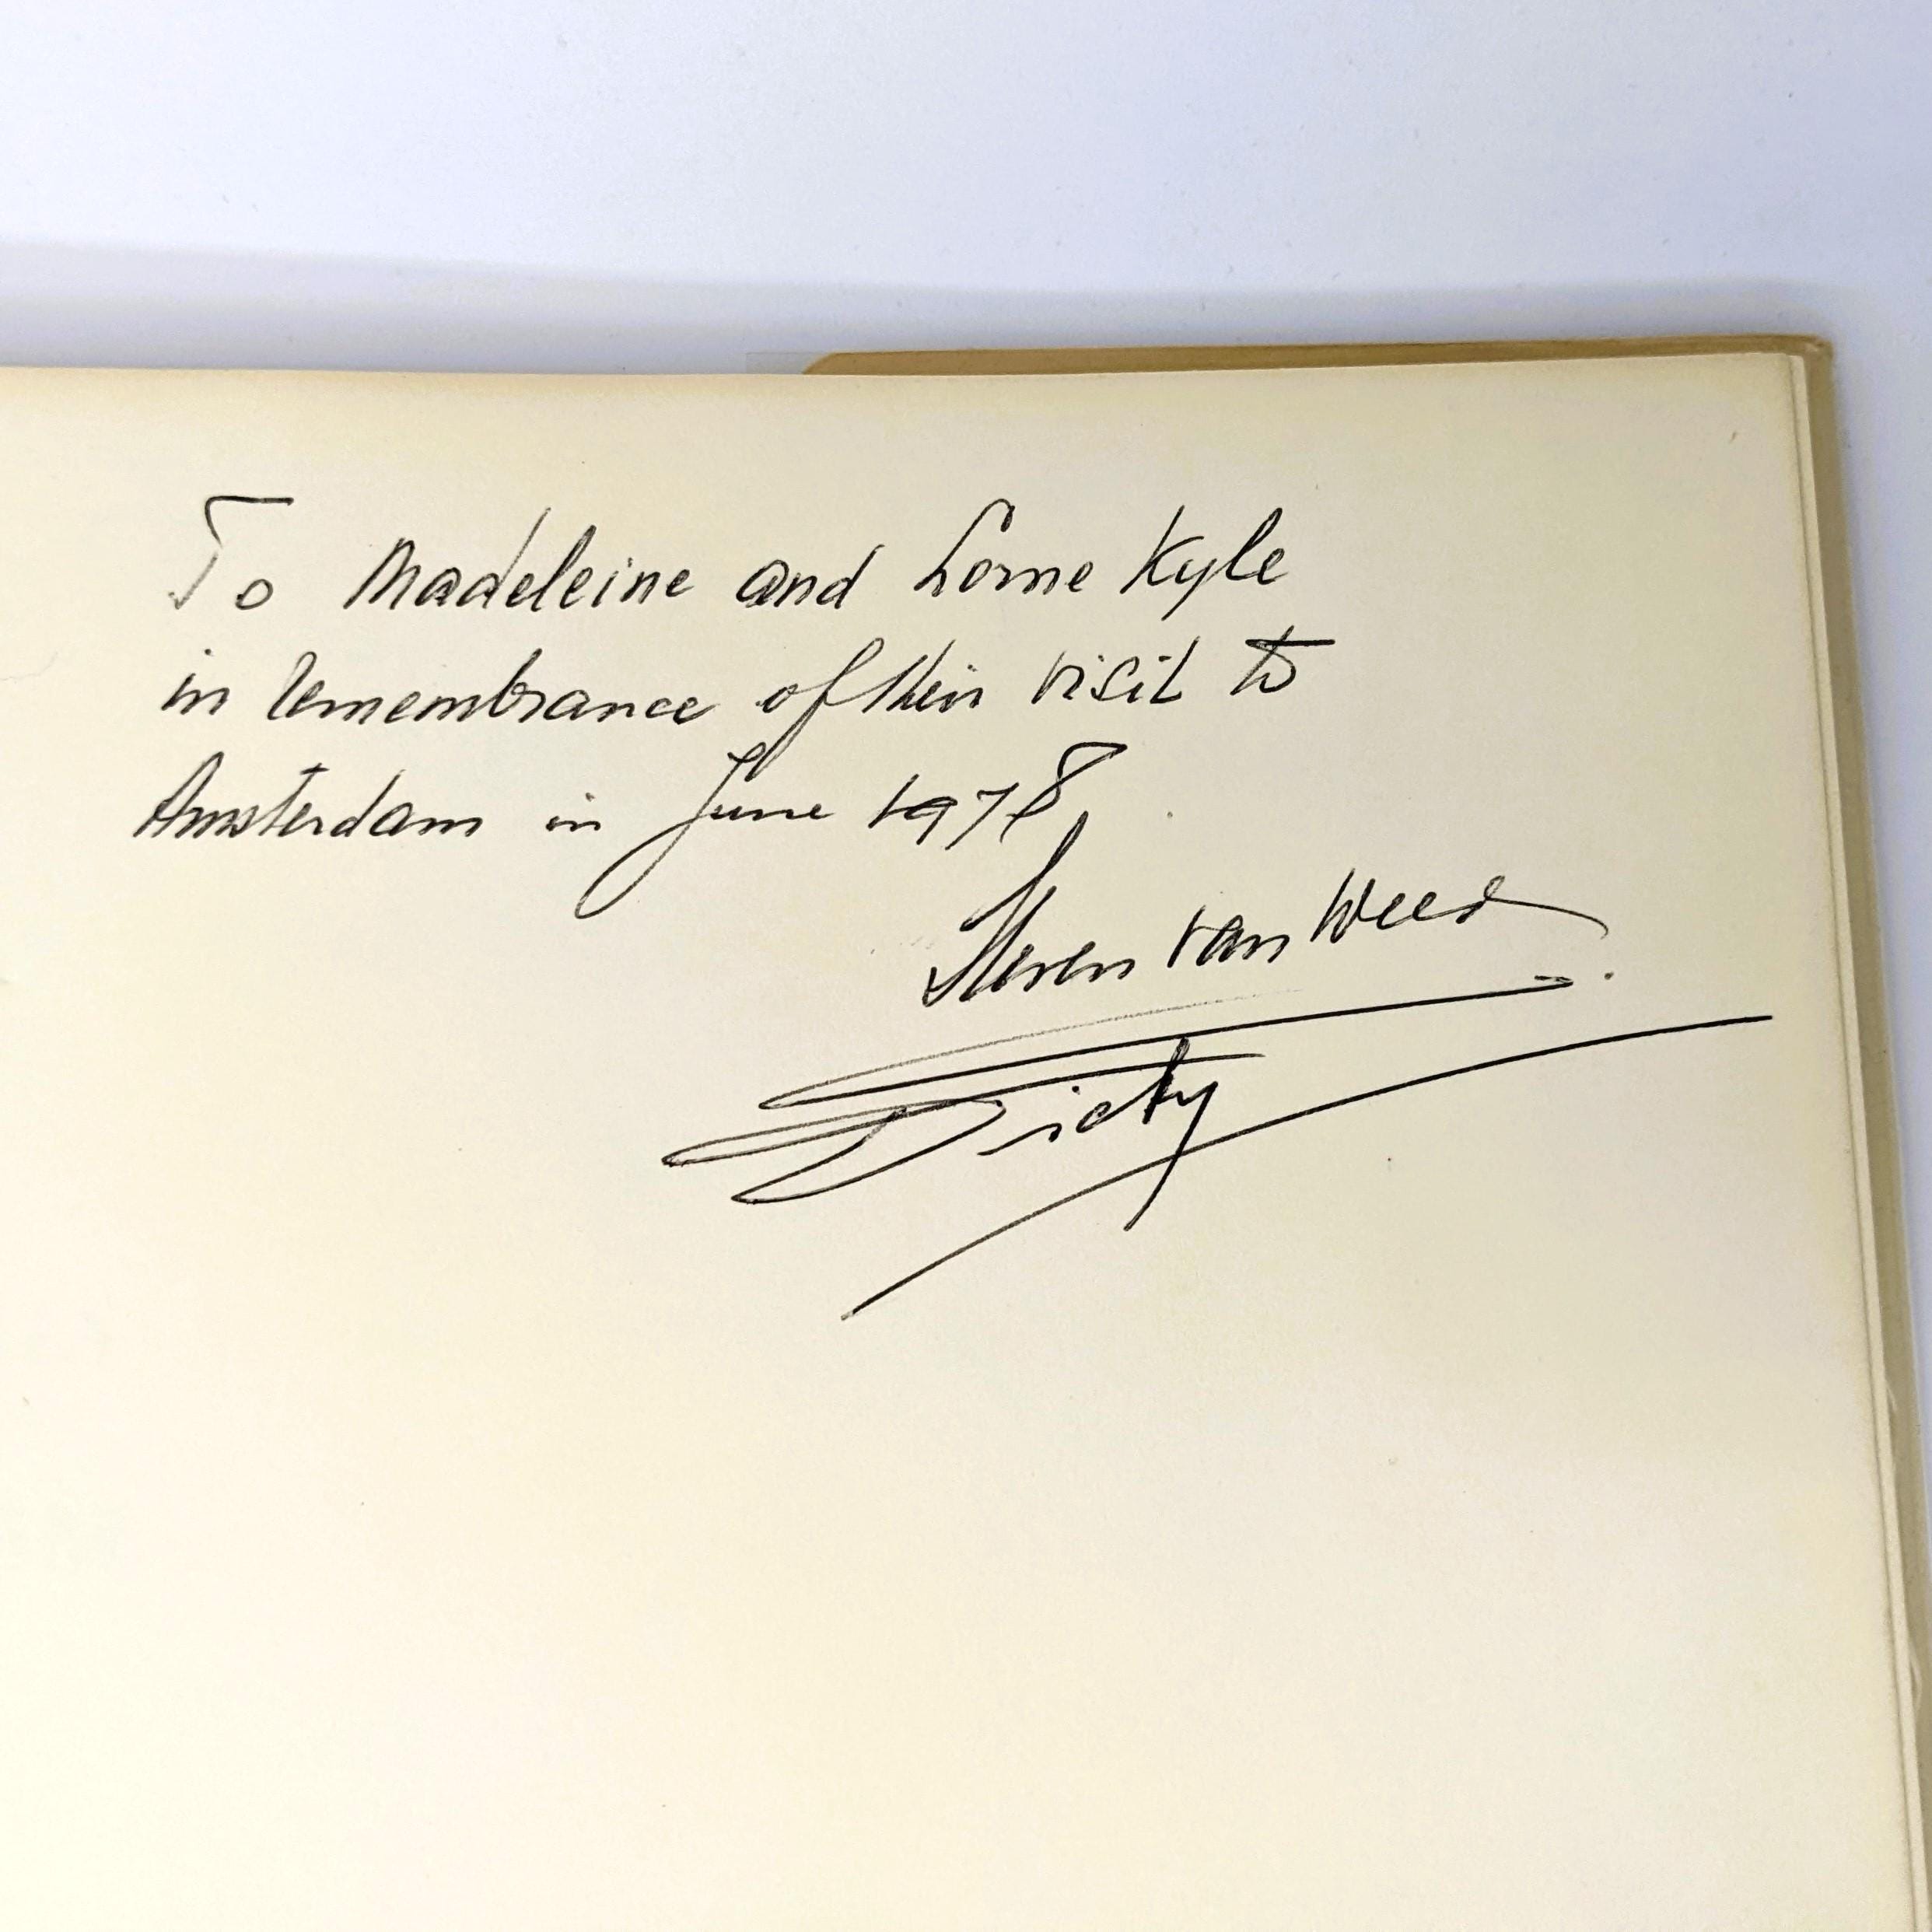 To Madeleine and Lorne Kyle
in remembrance of their visit to
Amsterdam in June 1978.
Steven van Weed